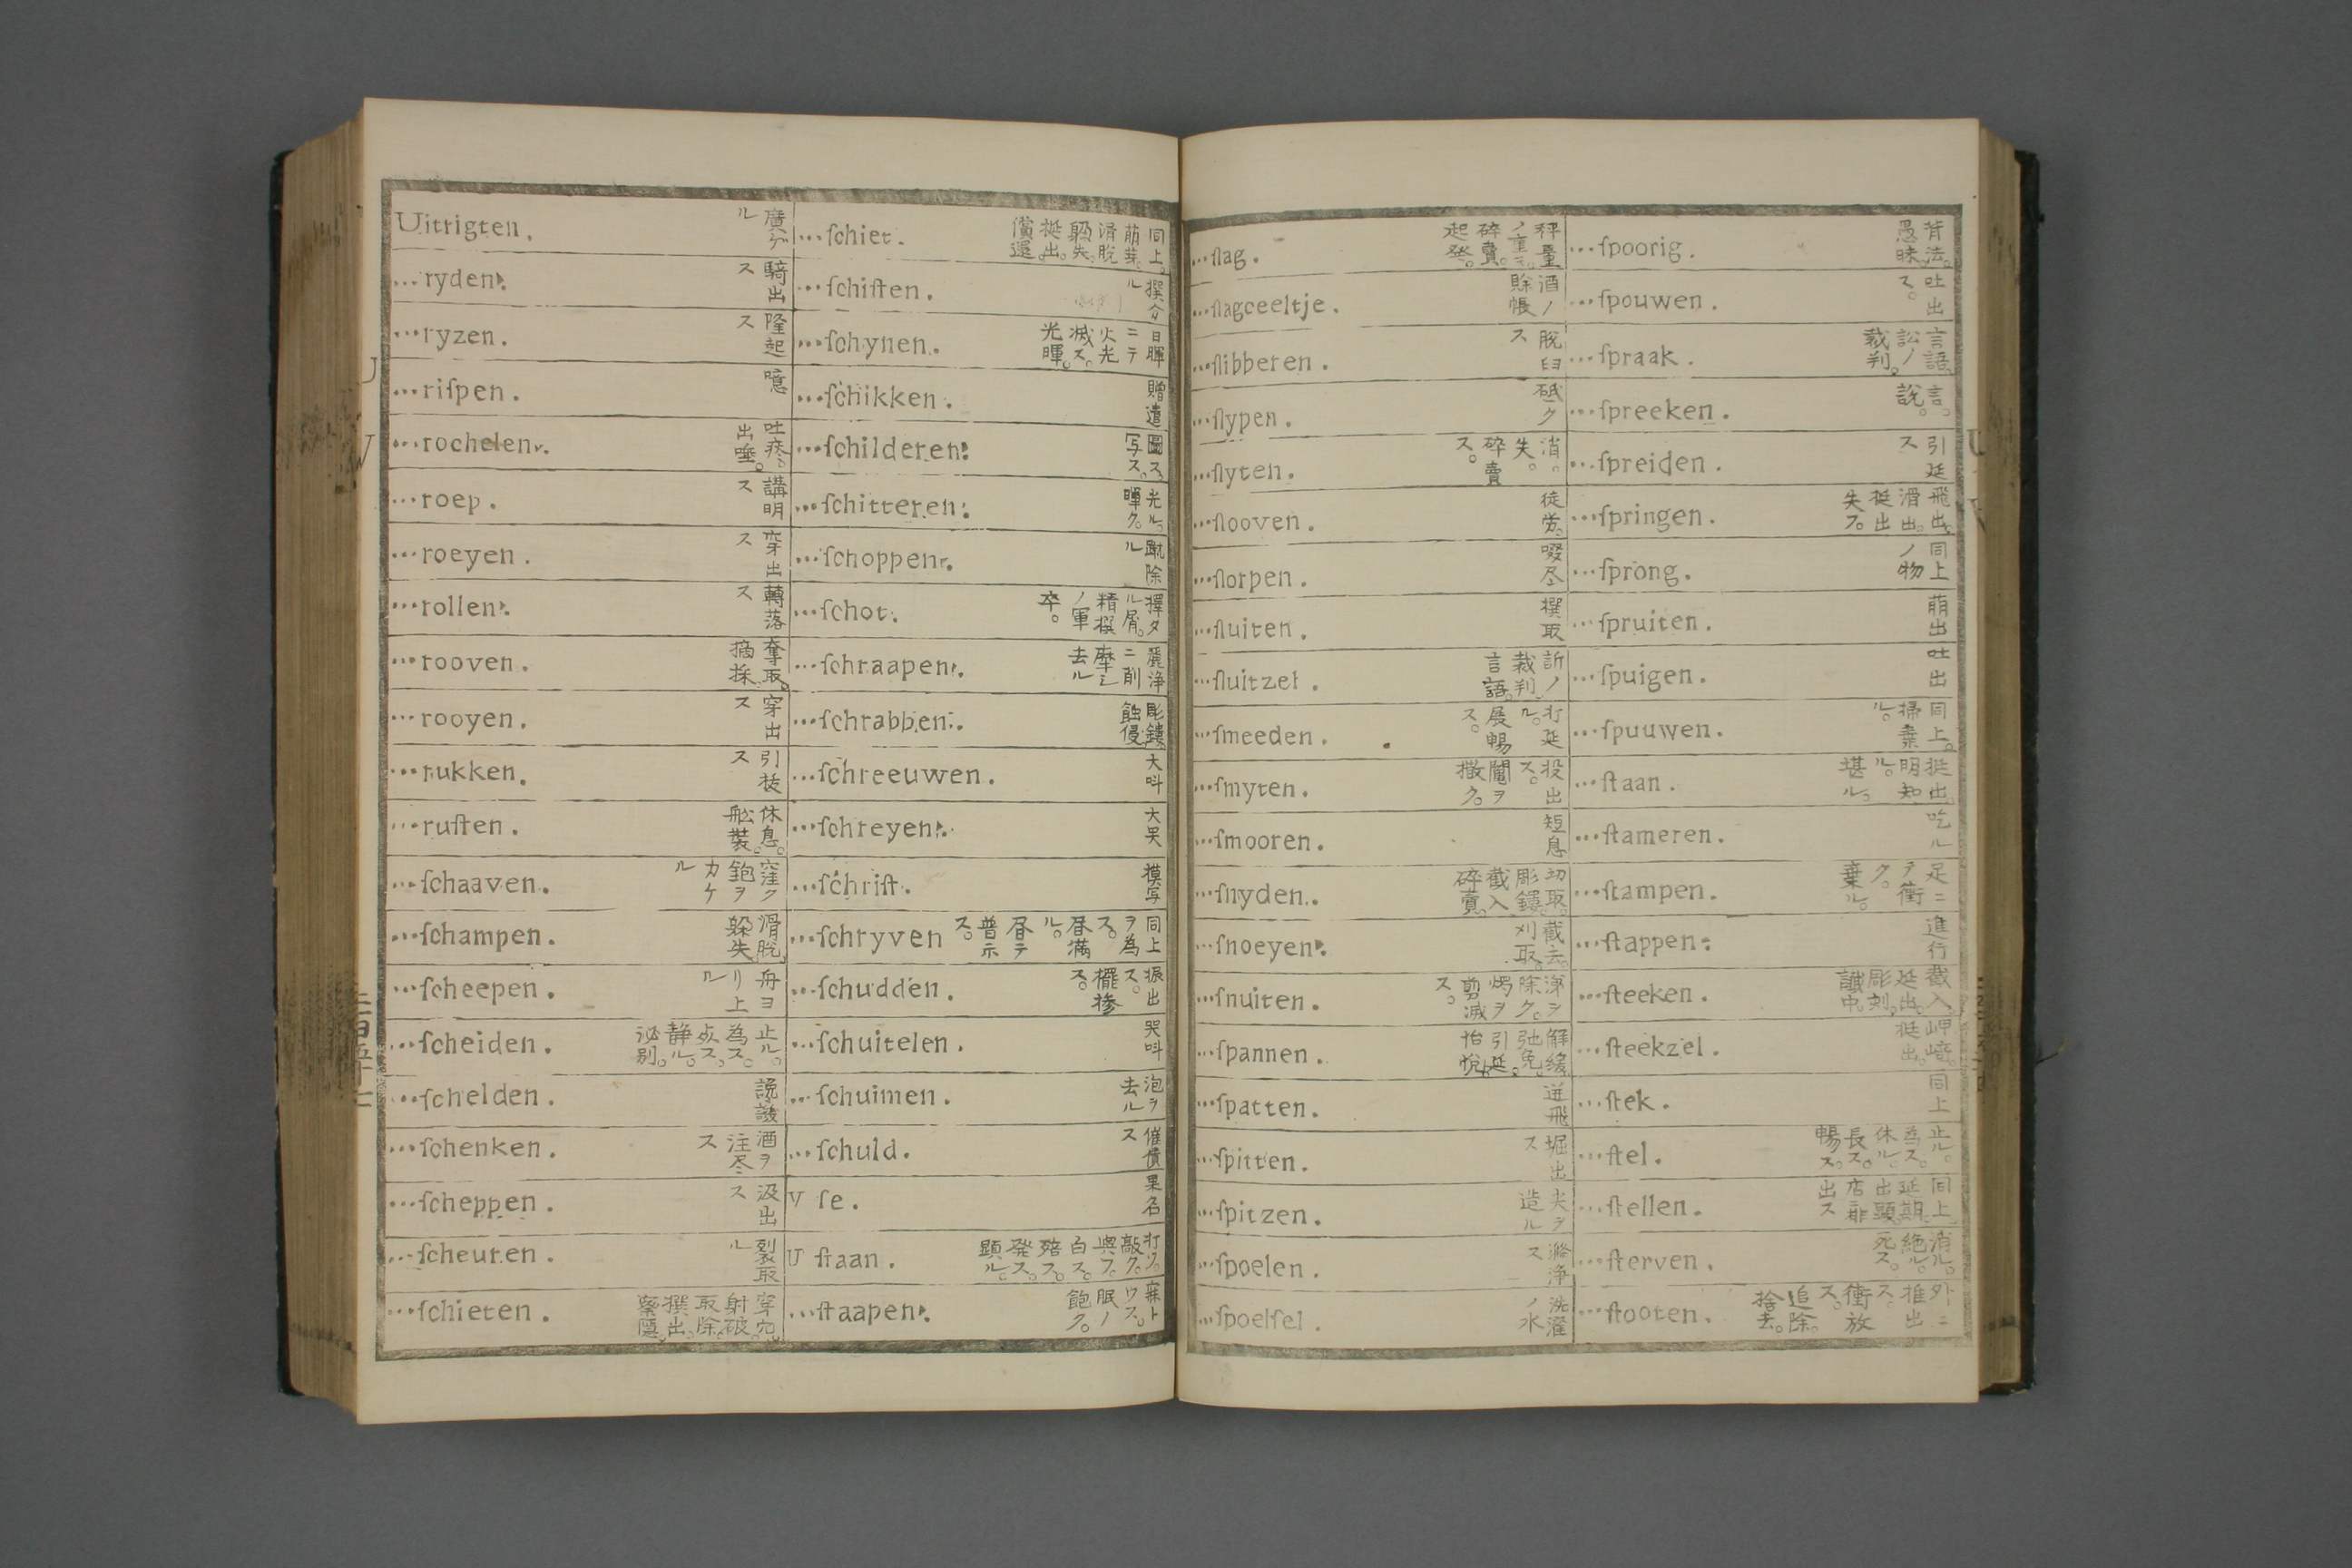 Uitrigten. 廣ゲル
...ryden. 騎出ス
...ryzen. 隆起ス
...riſpen. 噫
...rochelen. 吐痰。出唾。
...roep. 講明ス
...roeyen. 穿出ス
...rollen. 轉落ス
...rooven. 奪取。摘採
...rooyen. 穿出ス
...rukken. 引抜ス
...ruſten. 休息。舩裝。
...ſchaaven. 窪ク鉋ヲカケル
...ſchampen. 滑脱。躱失。
...ſcheepen. 舟ヨリ上ル
...ſcheiden. 止ル。為ス。点ス。静ル。泌別。
...ſchelden.
...ſchenken. 酒ヲ注尽ス
...ſcheppen. 汲出ス
...ſcheuren. 裂取ル
...ſchieten. 穿穴。射破。取除。撰出。
...ſchiet. 同上。萌芽。滑脱。躱失。挺出。償還。
...ſchiften. 撰分ル
...ſchynen. 日暉ニテ火光滅ス。光暉。
...ſchikken. 贈遣
...ſchilderen. 圖ス。写ス。
...ſchitteren. 光ル。暉ク。
...ſchoppen. 蹴除ル
...ſchot. 擇タル屑。精撰ノ軍卒。
...ſchraapen. 麗浄ニ削摩シ去ル
...ſchrabben. 彫鏤。蝕侵
...ſchreeuwen. 大呌
...ſchreyen. 大哭
...ſchrift. 摸写
...ſchryven 同上ヲ為ス。昼満ル。昼テ普示ス。
...ſchudden. 振出ス。擺摻ス。
...ſchuitelen. 哭呌
...ſchuimen. 泡ヲ去ル
...ſchuld. 催債ス
V ſe. 果名
U ſlaan. 打ツ。敲ク。與フ。白ス。発ス。顕ル。
...ſlaapen. 眠ノ飽ク。
...ſlag. 秤量ノ重ミ。碎賣。起発。
...ſlagceeltje. 酒ノ賒帳
...ſlibberen. 脱臼ス
...ſlypen. 砥ク
...ſlyten. 消。失。碎賣ス。
...ſlooven. 徒労。
...ſlorpen. 啜尽
...ſluiten. 撰取
...ſluitzel. 訴ノ裁判。言語。
...ſmeeden. 打延ル。展暢ス。
...ſmyten. 投出ス。鬮ヲ撒ク。
...ſmooren. 短息
...ſnyden. 切取。彫鏤。截入。碎賣。
...ſnoeyen. 截去。刈取。
...ſnuiten. 洟ヲ除ク。燭ヲ剪滅ス。
...ſpannen. 解緩。弛免。引延。怡悅。
...ſpatten. 迸飛
...ſpitten. 堀出ス
...ſpitzen. 尖ヲ造ル
...ſpoelen. 滌浄ス
...ſpoelſel. 洗濯ノ水
...ſpoorig. 背法。愚昧。
...ſpouwen. 吐出ス。
...ſpraak. 言語。訟ノ裁判。
...ſpreeken. 言。説。
...ſpreiden. 引延ス
...ſpringen. 飛出。滑出。挺出。失フ。
...ſprong. 同上ノ物
...ſpruiten. 萌出
...ſpuigen. 吐出
...ſpuuwen. 同上。掃棄ル。
...ſtaan. 挺出。明知ル。堪ル。
...ſtameren. 吃ル
...ſtampen. 足ニテ衝ク。棄ル。
...ſtappen. 進行
...ſteeken. 截入。延出。彫刻。譏中。
...ſteekzel. 岬﨑。挺出。
...ſtek. 同上
...ſtel. 止ル。為ス。休ル。長ス。暢ス。
...ſtellen. 同上。延期。出顕。店
...ſterven. 消ル。絶ル。死ス。
...ſtooten. 外ニ推出ス。衝放ス。追除。捨去。